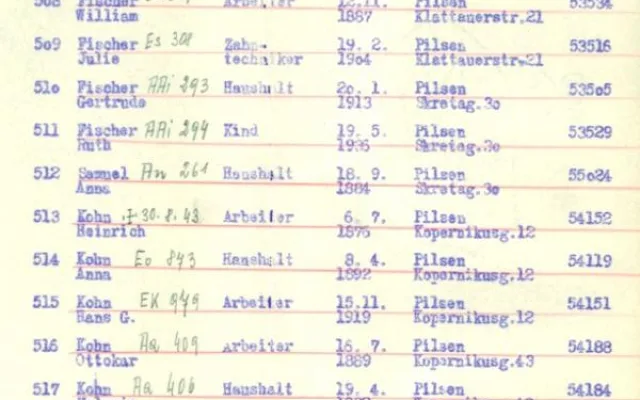 508 Fischer Arbeiter 12.11. Pilsen 53534
William 1887 Klattauerstr.21
509 Fischer Es 308 Zahn- 19. 2. Pilsen 53516
Julie techniker 1904 Klattauerstr.21
510 Fischer AAi 293 Haushalt 20. 1. Pilsen 53505
Gertrude 1913 Skretag.30
511 Fischer AAi 294 Kind 19. 5. Pilsen 53529
Ruth 1936 Skretag.30
512 Samuel An 261 Haushalt 18. 9. Pilsen 55024
Anna 1884 Skretag.30
513 Kohn I 30.8.43 Arbeiter 6. 7. Pilsen 54152
Heinrich 1876 Kopernikusg.12
514 Kohn Eo 843 Haushalt 8. 4. Pilsen 54119
Anna 1892 Kopernikusg.12
515 Kohn EK 979 Arbeiter 15.11. Pilsen 54151
Hans G. 1919 Kopernikusg.12
516 Kohn Aq 409 Arbeiter 16. 7. Pilsen 54188
Ottokar 1889 Kopernikusg.43
517 Kohn Aq 406 Haushalt 19. 4. Pilsen 54184